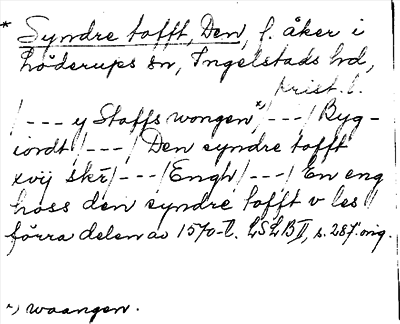 * Syndre tofft, Den, f. åker i
Löderups sn, Ingelstads hd,
Krist. l.
/--- y Staffs wongen *)/---/ Byg-
iordt /---/ Den syndre tofft
xvij skr̄/---/Engh/---/ En eng
hoss den syndre tofft v les
förra delen av 1570-t. LSLB II, s. 287 orig.
*) waangen.